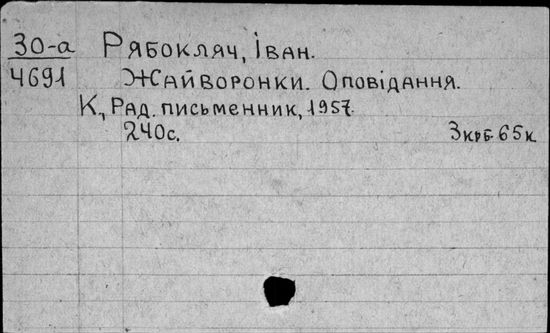 30-а Рябокляч, Іван.
4691 Жайворонки. Оповідання.
К., Рад. письменник, 1957.
240с. 3крб. 65к